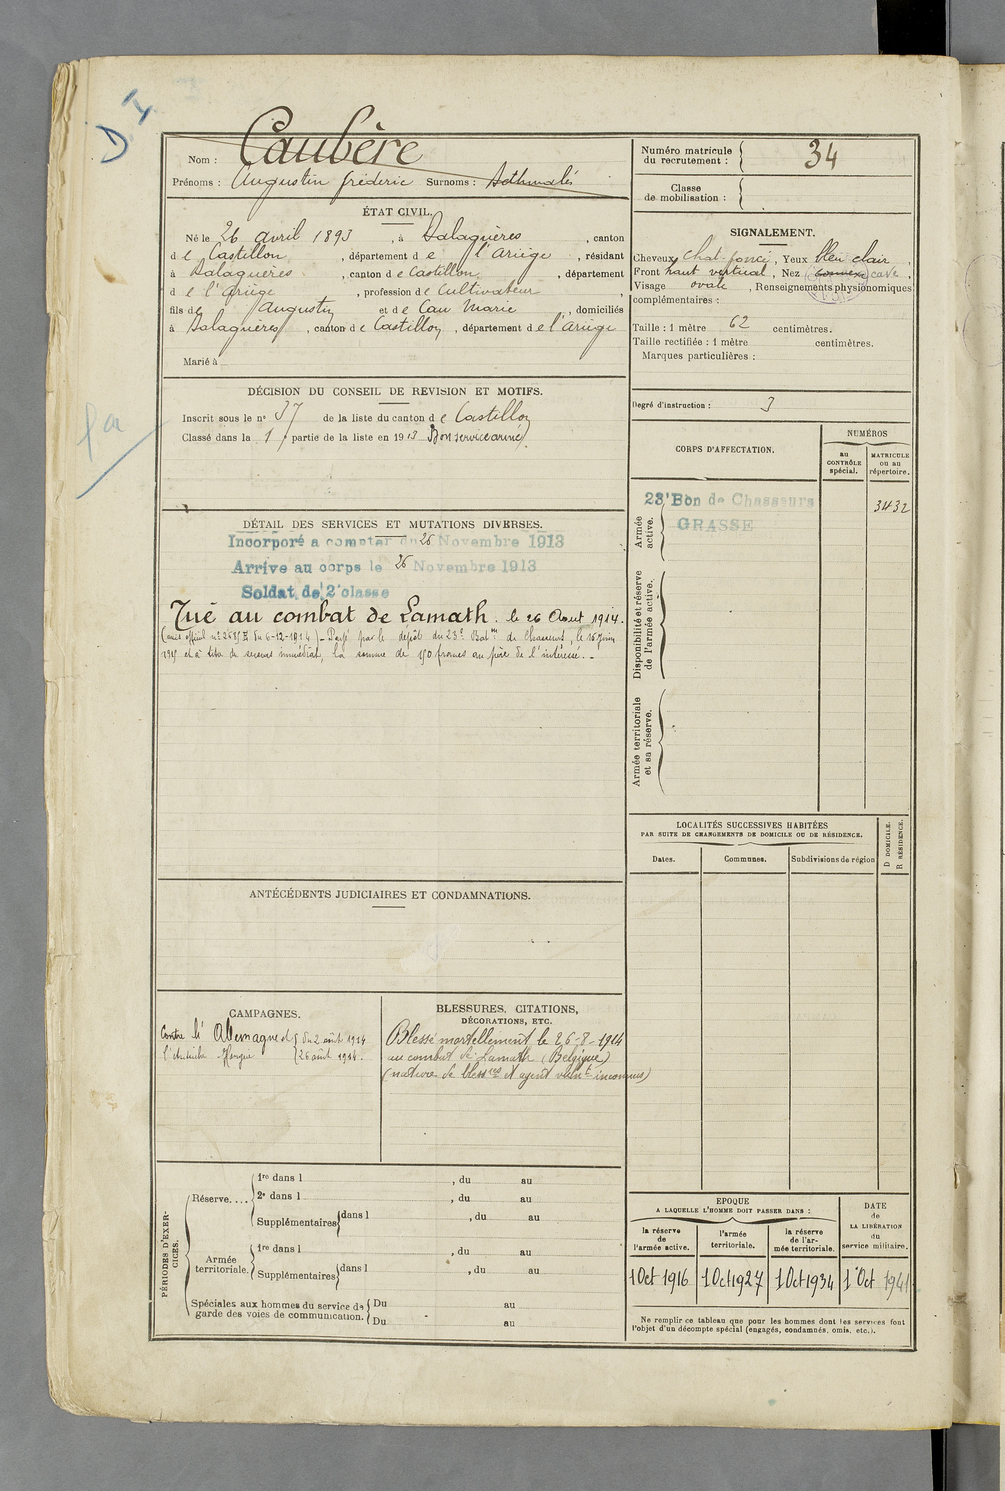 D I
Nom : Caubère
Prénoms : Augustin frédéric Surnoms :
Numéro matricule du recrutement : 34
Classe de mobilisation :
ÉTAT CIVIL.
Né le 26 avril 1893, à Balaguères, canton
de Castillon, département de l'Ariège, résidant
à Balaguères, canton de Castillon, département
de l'Ariège, profession de Cultivateur
fils de Augustin et de Cau Marie, domiciliés
à Balaguères, canton de Castillon, département de l'Ariège
Marié à
SIGNALEMENT.
Cheveux chat. foncé, Yeux bleu clair,
Front haut vertical, Nez convexe cave,
Visage ovale, Renseignements physionomiques
complémentaires :
Taille : 1 mètre 62 centimètres.
Taille rectifiée : 1 mètre centimètres.
Marques particulières :
Degré d'instruction : 3
DÉCISION DU CONSEIL DE REVISION ET MOTIFS.
Inscrit sous le n° 37 de la liste du canton de Castillon
Classé dans la 1 partie de la liste en 1913 Bon service armé
CORPS D'AFFECTATION.
NUMÉROS
au CONTRÔLE spécial.
MATRICULE ou au répertoire.
Armée active.
23e Bon de Chasseurs
GRASSE
3432
Disponibilité et réserve de l'armée active.
Armée territoriale et sa réserve.
DÉTAIL DES SERVICES ET MUTATIONS DIVERSES.
Incorporé à compter du 26 Novembre 1913
Arrivé au corps le 26 Novembre 1913
Soldat de 2e classe
Tué au combat de Lamath. le 26 Août 1914.
(avis officiel n° du 6-12-1914) - Payé par le dépôt du 23e Bat.on de Chasseurs, le 16 juin
1915 et à titre de secours immédiat, la somme de 150 francs au père de l'intéressé. -
LOCALITÉS SUCCESSIVES HABITÉES
PAR SUITE DE CHANGEMENTS DE DOMICILE OU DE RÉSIDENCE.
Dates.
Communes.
Subdivisions de région
D DOMICILE.
R RÉSIDENCE.
ANTÉCÉDENTS JUDICIAIRES ET CONDAMNATIONS.
CAMPAGNES.
Contre l'Allemagne et du 2 août 1914
l'Autriche Hongrie 26 août 1914.
BLESSURES, CITATIONS,
DÉCORATIONS, ETC.
Blessé mortellement le 26-8-1914
au combat de Lamath (Belgique)
(nature de bless.res et agent vuln.t inconnus)
PÉRIODES D'EXERCICES.
Réserve....
1re dans l , du au
2e dans l , du au
Supplémentaires dans l , du au
Armée territoriale.
1re dans l , du au
Supplémentaires dans l , du au
Spéciales aux hommes du service de garde des voies de communication.
Du au
Du au
EPOQUE
A LAQUELLE L'HOMME DOIT PASSER DANS :
la réserve de l'armée active.
l'armée territoriale.
la réserve de l'armée territoriale.
DATE de LA LIBÉRATION du service militaire.
1 Oct 1916
1 Oct 1927
1 Oct 1934
1 Oct 1941
Ne remplir ce tableau que pour les hommes dont les services font
l'objet d'un décompte spécial (engagés, condamnés, omis, etc.).